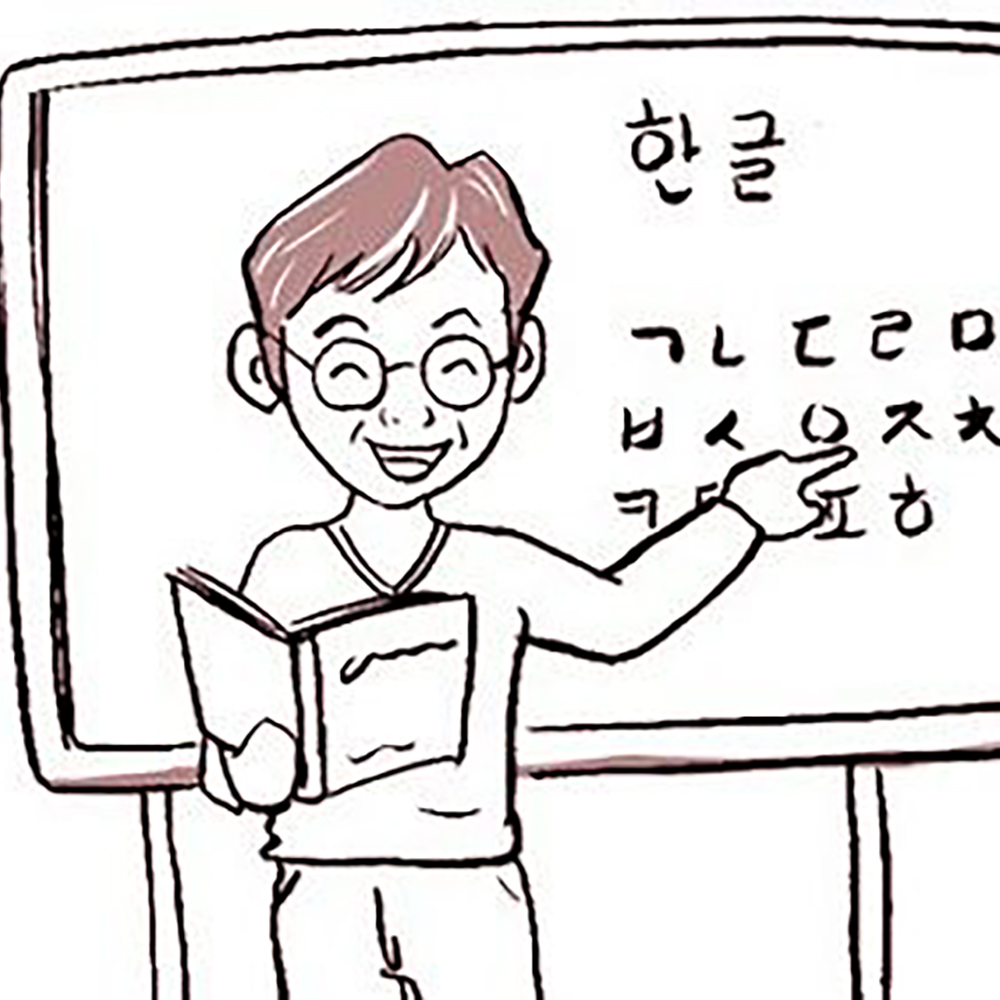 한글
ㄱㄴㄷㄹㅁ
ㅂㅅㅇㅈㅊ
ㅋㅌㅍㅎ